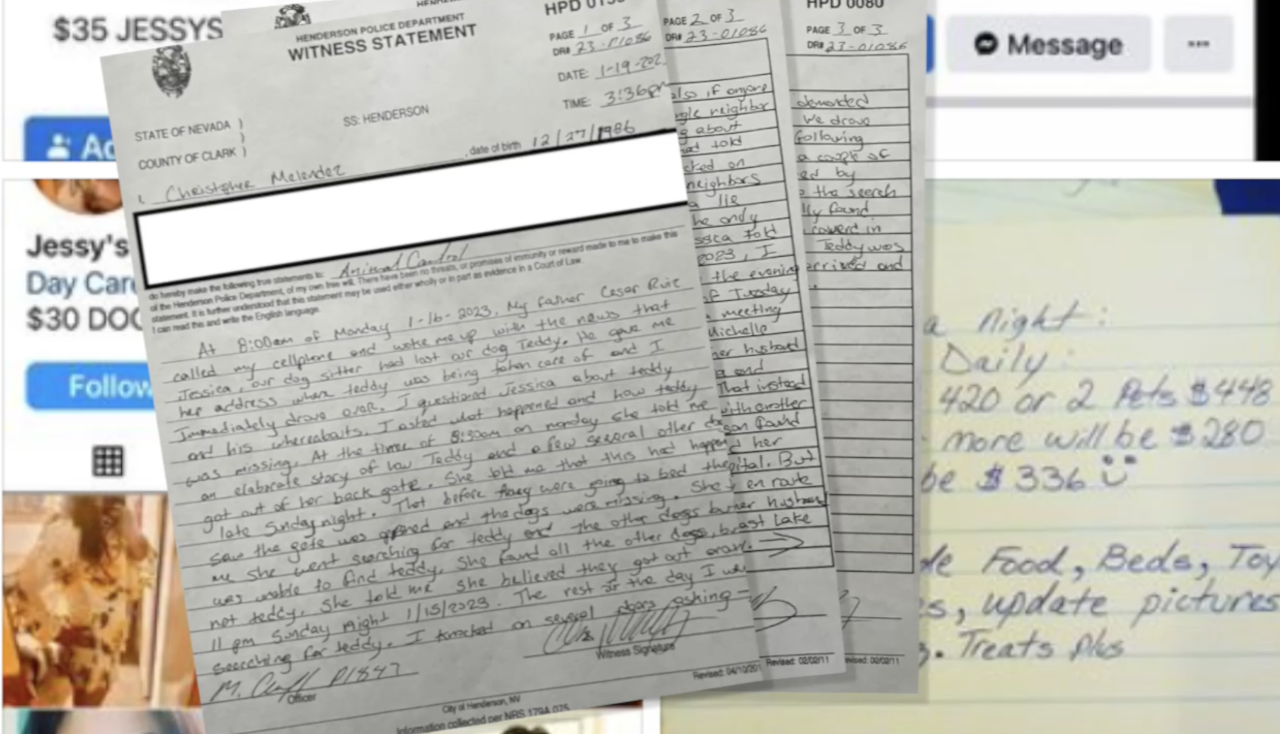 $35 JESSYS
Ad
Message
...
Jessy's
Day Care
$30 DOG
Follow
HENDERSON POLICE DEPARTMENT
WITNESS STATEMENT
PAGE 1 OF 3
DR# 23-01086
DATE: 1-19-202
TIME: 3:36pm
STATE OF NEVADA )
)
COUNTY OF CLARK )
SS: HENDERSON
I, Christopher Melendez, date of birth 12/27/1986
do hereby make the following true statements to: Animal Control
of the Henderson Police Department, of my own free will. There have been no threats, or promises of immunity or reward made to me to make this
statement. It is further understood that this statement may be used either wholly or in part as evidence in a Court of Law.
I can read this and write the English language.
At 8:00am of Monday 1-16-2023, My father Cesar Ruiz
called my cellphone and woke me up with the news that
Jessica, our dog sitter had lost our dog Teddy. He gave me
her address where teddy was being taken care of and I
Immediately drove over. I questioned Jessica about teddy
and his whereabouts. I asked what happened and how teddy
was missing. At the time of 8:50am on monday she told me
an elaborate story of how Teddy and a few several other dogs
got out of her back gate. She told me that this had happen
late Sunday night. That before they were going to bed they
saw the gate was opened and the dogs were missing. She
me she went searching for teddy and the other dogs but
was unable to find teddy. She found all the other dogs, but
not teddy. She told me she believed they got out
11 pm Sunday Night 1/15/2023. The rest of the day I we
searching for teddy. I knocked on several doors asking
P1847
Officer
Witness Signature
Revised: 04/10/201
City of Henderson, NV
Information collected per NRS 179A.075
PAGE 2 OF 3
DR# 23-01086
also if anyone
gle neighbor
g about
ad told
cked on
neighbors
a lie
he only
ssica told
2023, I
the evening
of Tuesday
a meeting
Michelle
her husband
a and
That instead
with another
son found
d her
pital. But
en route
ner husband
ast Lake
Revised: 02/02/11
HPD 0080
PAGE 3 OF 3
DR# 23-01086
demanded
We drove
following
a couple of
ed by
the search
lly found
covered in
Teddy was
arrived and
evised: 02/02/11
a Night:
Daily:
420 or 2 Pets $448
more will be $280
be $336
de Food, Beds, Toy
s, update pictures
g. Treats Plus